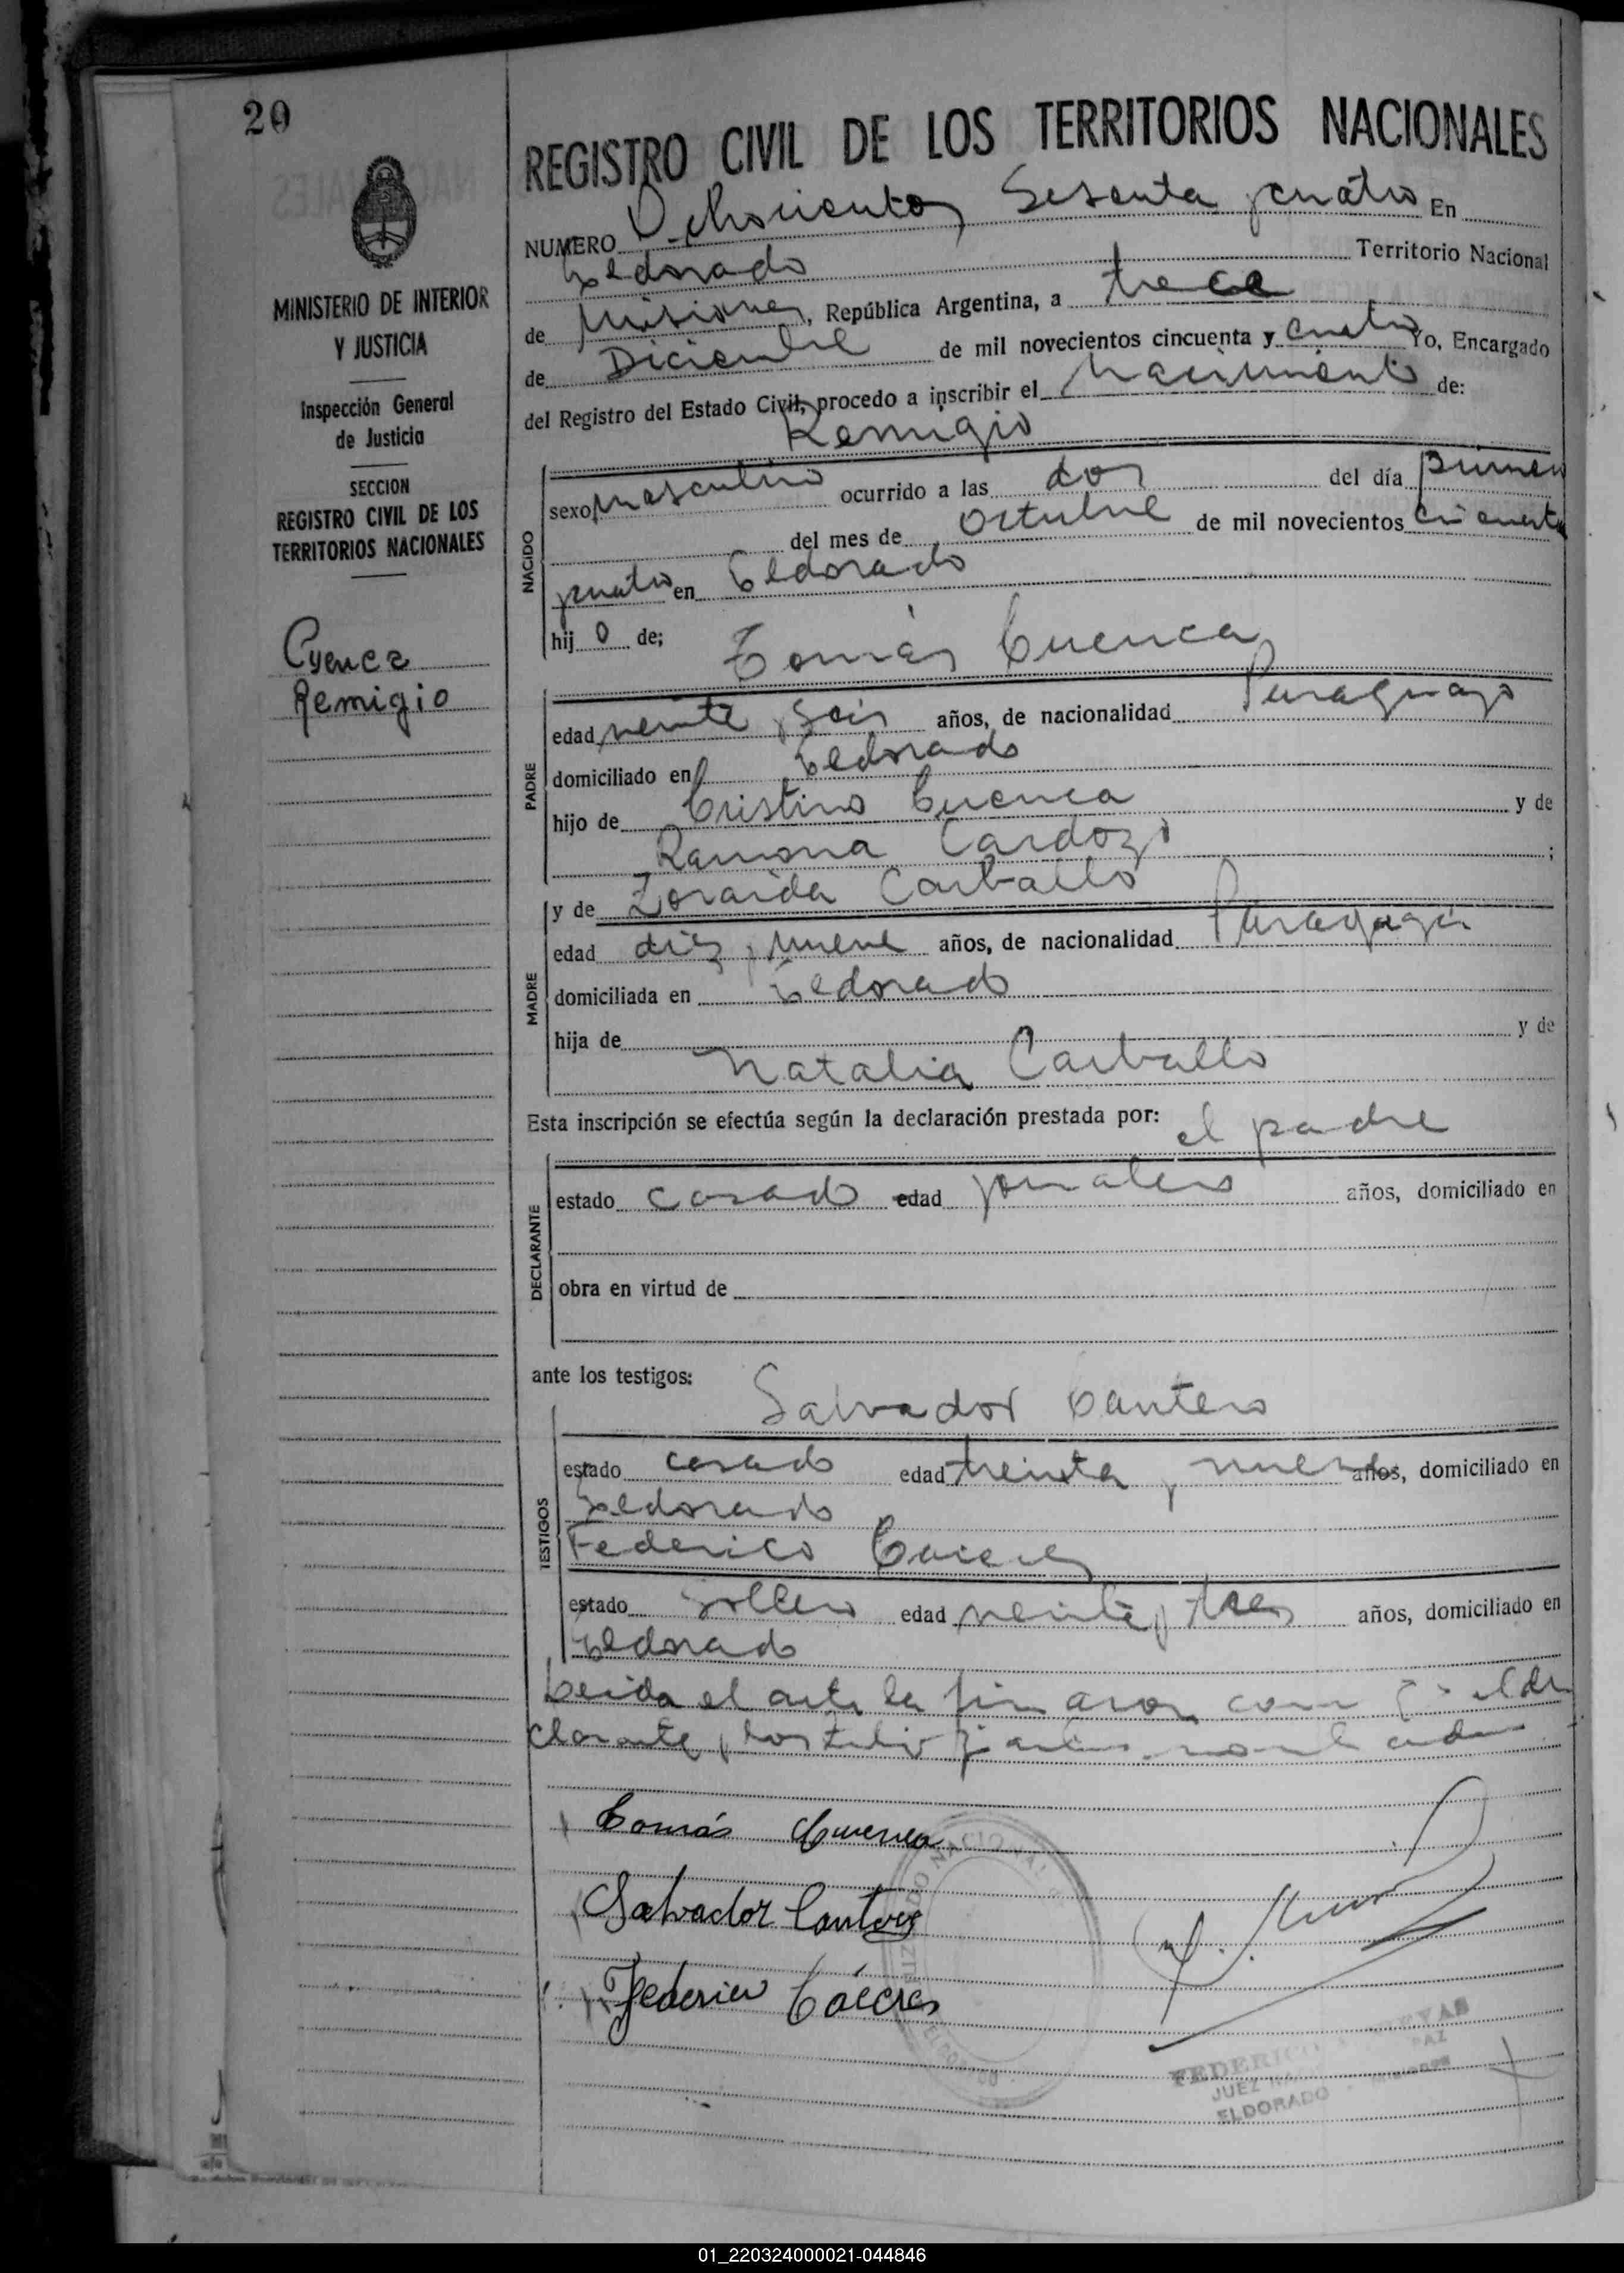 20
MINISTERIO DE INTERIOR
Y JUSTICIA
Inspección General
de Justicia
SECCION
REGISTRO CIVIL DE LOS
TERRITORIOS NACIONALES
Cuenca
Remigio
REGISTRO CIVIL DE LOS TERRITORIOS NACIONALES
NUMERO Ochocientos Sesenta y cuatro En
Eldorado Territorio Nacional
de Misiones, República Argentina, a trece
de Diciembre de mil novecientos cincuenta y cuatro Yo, Encargado
del Registro del Estado Civil, procedo a inscribir el Nacimiento de:
Remigio
NACIDO
sexo masculino ocurrido a las dos del día primero
del mes de Octubre de mil novecientos cincuenta
y cuatro en Eldorado
hij o de; Tomás Cuenca
PADRE
edad veinte y seis años, de nacionalidad Paraguayo
domiciliado en Eldorado
hijo de Cristino Cuenca y de
Ramona Cardozo ;
MADRE
y de Zoraida Carballo
edad diez y nueve años, de nacionalidad Paraguaya
domiciliada en Eldorado
hija de y de
Natalia Carballo
Esta inscripción se efectúa según la declaración prestada por: el padre
DECLARANTE
estado casado edad jornalero años, domiciliado en
obra en virtud de
ante los testigos: Salvador Cantero
TESTIGOS
estado casado edad treinta y nueve años, domiciliado en
Eldorado
Federico Caceres
estado soltero edad veinte y tres años, domiciliado en
Eldorado
Leida el acta la firmaron el de
clarante y los testigos
Tomás Cuenca
Salvador Cantero
Federico Cáceres
NACIONAL
JUZ
ELDORADO
FEDERICO
JUEZ PAZ
ELDORADO - MISIONES
01_220324000021-044846